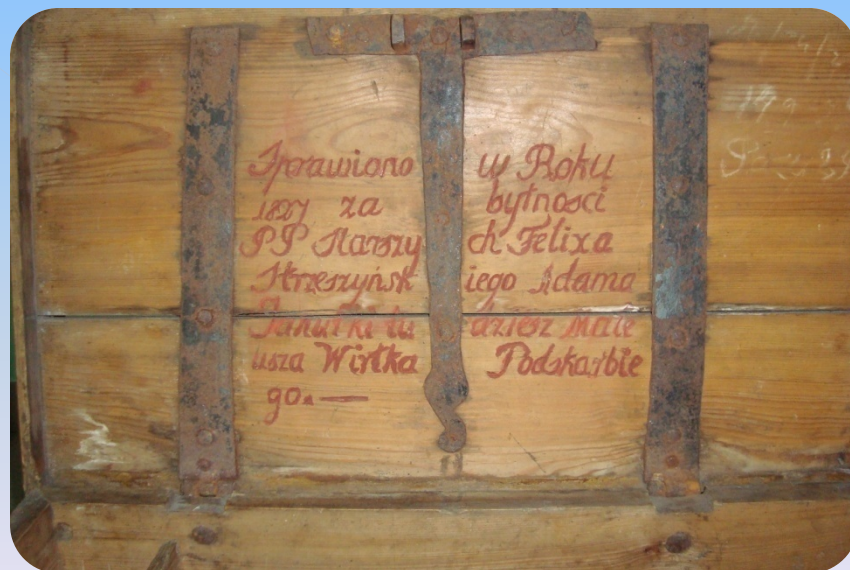 Sprawiono w Roku
1827 za bytnosci
PP Starszych Felixa
Strzeszyńskiego Adama
dziesz Mate
usza Wirtka Podskarbie
go. —